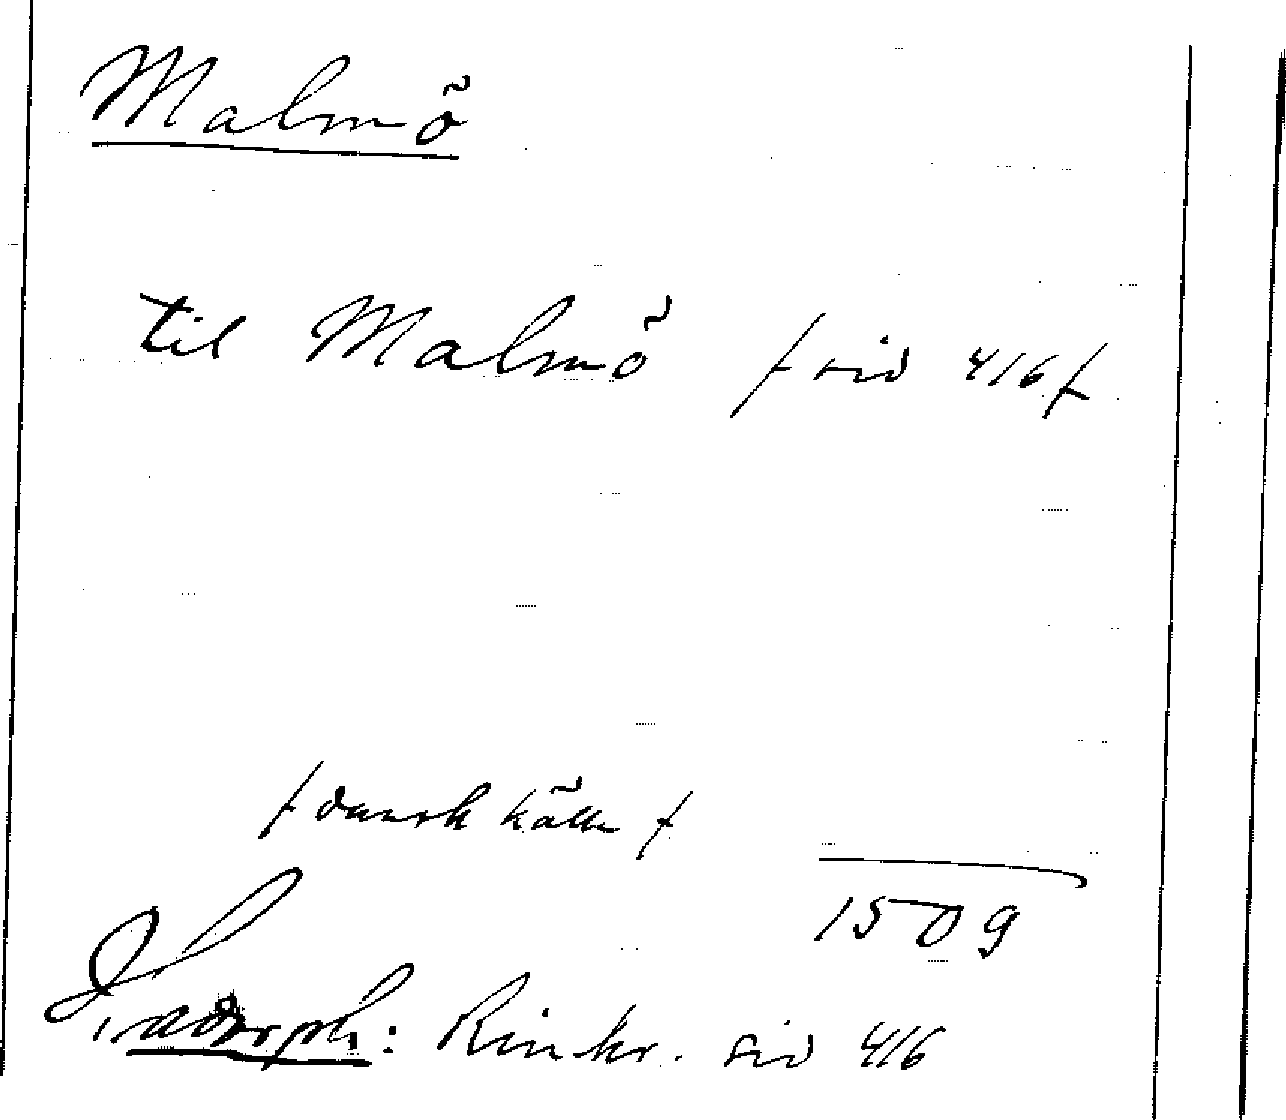 Malmö
til Malmö / sid 416 /
/ dansk källa /
1509
Hadorph: Rimkr. sid 416